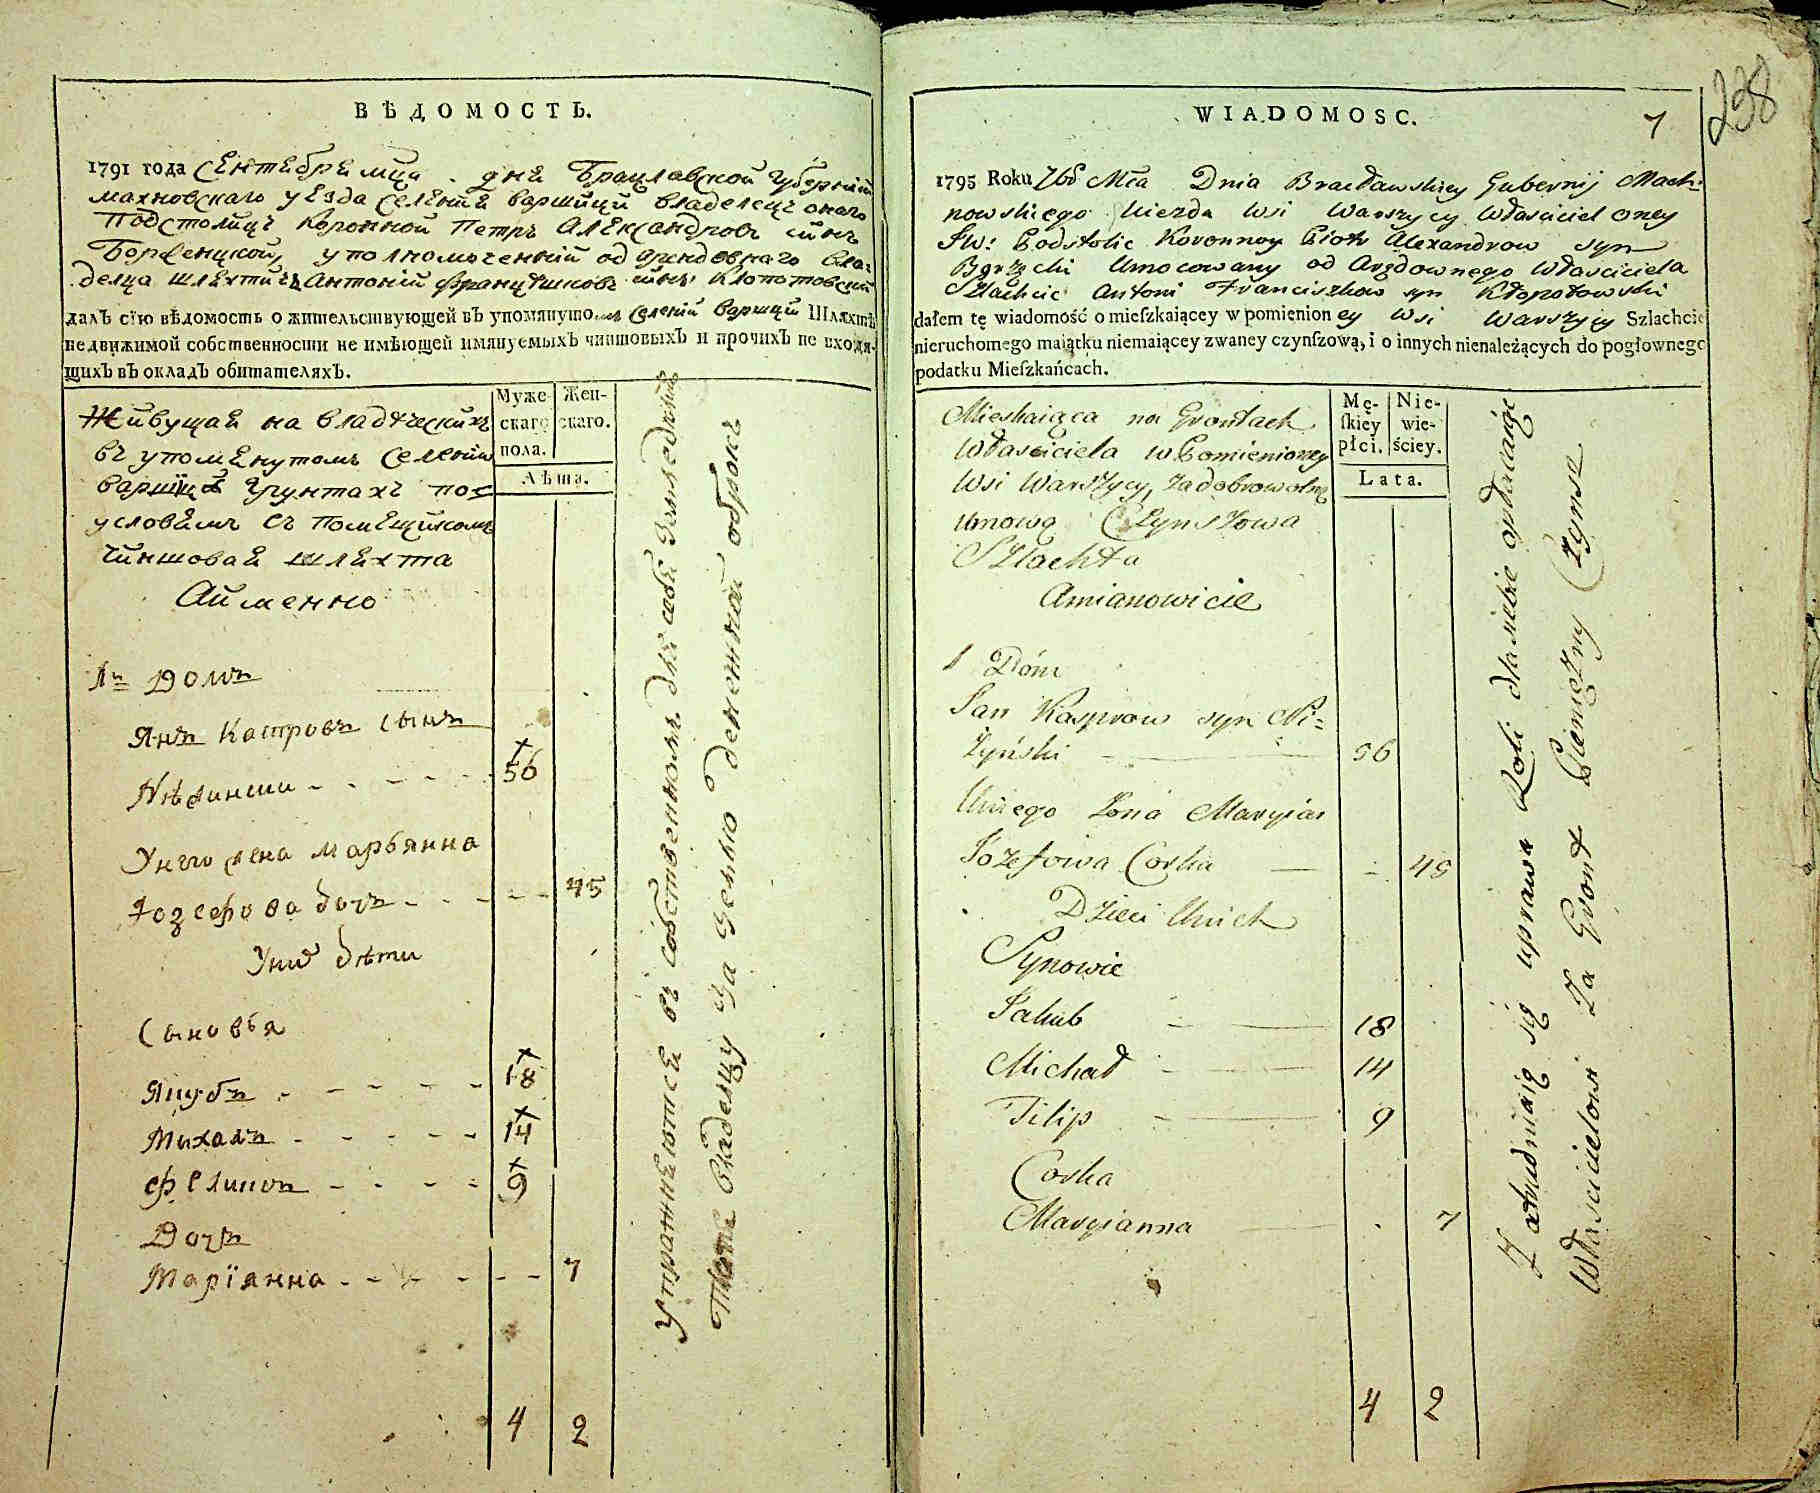 ВѢДОМОСТЬ.
1791 года Сентебре мца . дня Брацлавской Губернии
махновскаго уезда Селения варшици владелец онаго
Подстолиц Коронной Петръ Александровъ сынъ
уполномоченний од арендовнаго вла=
делца шлехтичъ Антоний Францишковъ сынъ Клопотовский
далъ сїю вѣдомость о жительствующей въ упомянутомъ селении варшици Шляхтѣ
недвижимой собственности не имѣющей имянуемыхъ чиншовыхъ и прочихъ не входя-
щихъ въ окладъ обитателяхъ.
Муже-
скаго
пола.
Жен-
скаго.
Лѣта.
Живущая на владѣческихъ
въ упоменутомъ Селении
варшици грунтахъ по
условиямъ съ помещикомъ
чиншовая шлехта
Аименно
1й Домъ
Янъ Каспровъ сынъ
Нѣжински - - - - - 56
Унго жена марьянна
Юозефова дочь - - - - - 45
Уних дѣти
Сыновья
Якубъ - - - - - 18
Михалъ - - - - - 14
Филипъ - - - - 9
Дочь
Марїанна - - - - - 7
4 2
Упражняются въ собственномъ для себя
владелцу за землю денежной оброкъ
WIADOMOSC.
7
238
1795 Roku 7bs Mca Dnia Bracławskiey Gubernij Mach=
nowskiego Uiezda wsi Warszycy Własciciel oney
Jw: Podstolic Koronnoy Piotr Alexandrow syn
Umocowany od Arędownego Własciciela
Szlachcic Antoni Franciszkow syn Kłopotowski
dałem tę wiadomość o mieſzkaiącey w pomienioney wsi Warszycy Szlachcie
nieruchomego maiątku niemaiącey zwaney czynſzową, i o innych nienależących do pogłownego
podatku Mieſzkańcach.
Mę-
ſkiey
płci.
Nie-
wie-
ściey.
Lata.
Mieskaiąca na Grontach
Własciciela w Pomienioney
Wsi Warszycy, za dobrowolną
Umową Czynszowa
Szlachta
Amianowicie
1 Dóm
Jan Kasprow syn Ni=
żyński — 56
Uniego żona Maryian
Jozefowa Corka — 45
Dzieci Unich
Synowie
Jakub — 18
Michał — 14
Filip — 9
Corka
Maryianna — 7
4 2
Zatrudniaią się uprawą Roli dla siebie opłacaiąc
Własicielowi Za Gront Pieniężny Czynsz